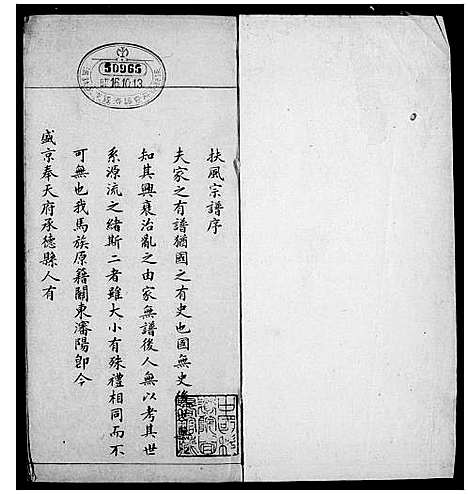 扶風宗譜序
夫家之有譜猶國之有史也國無史後
知其興衰治亂之由家無譜後人無以考其世
系源流之緒斯二者雖大小有殊禮相同而不
可無也我馬族原籍關東瀋陽卽今
盛京奉天府承德縣人有
50965
16.10.13